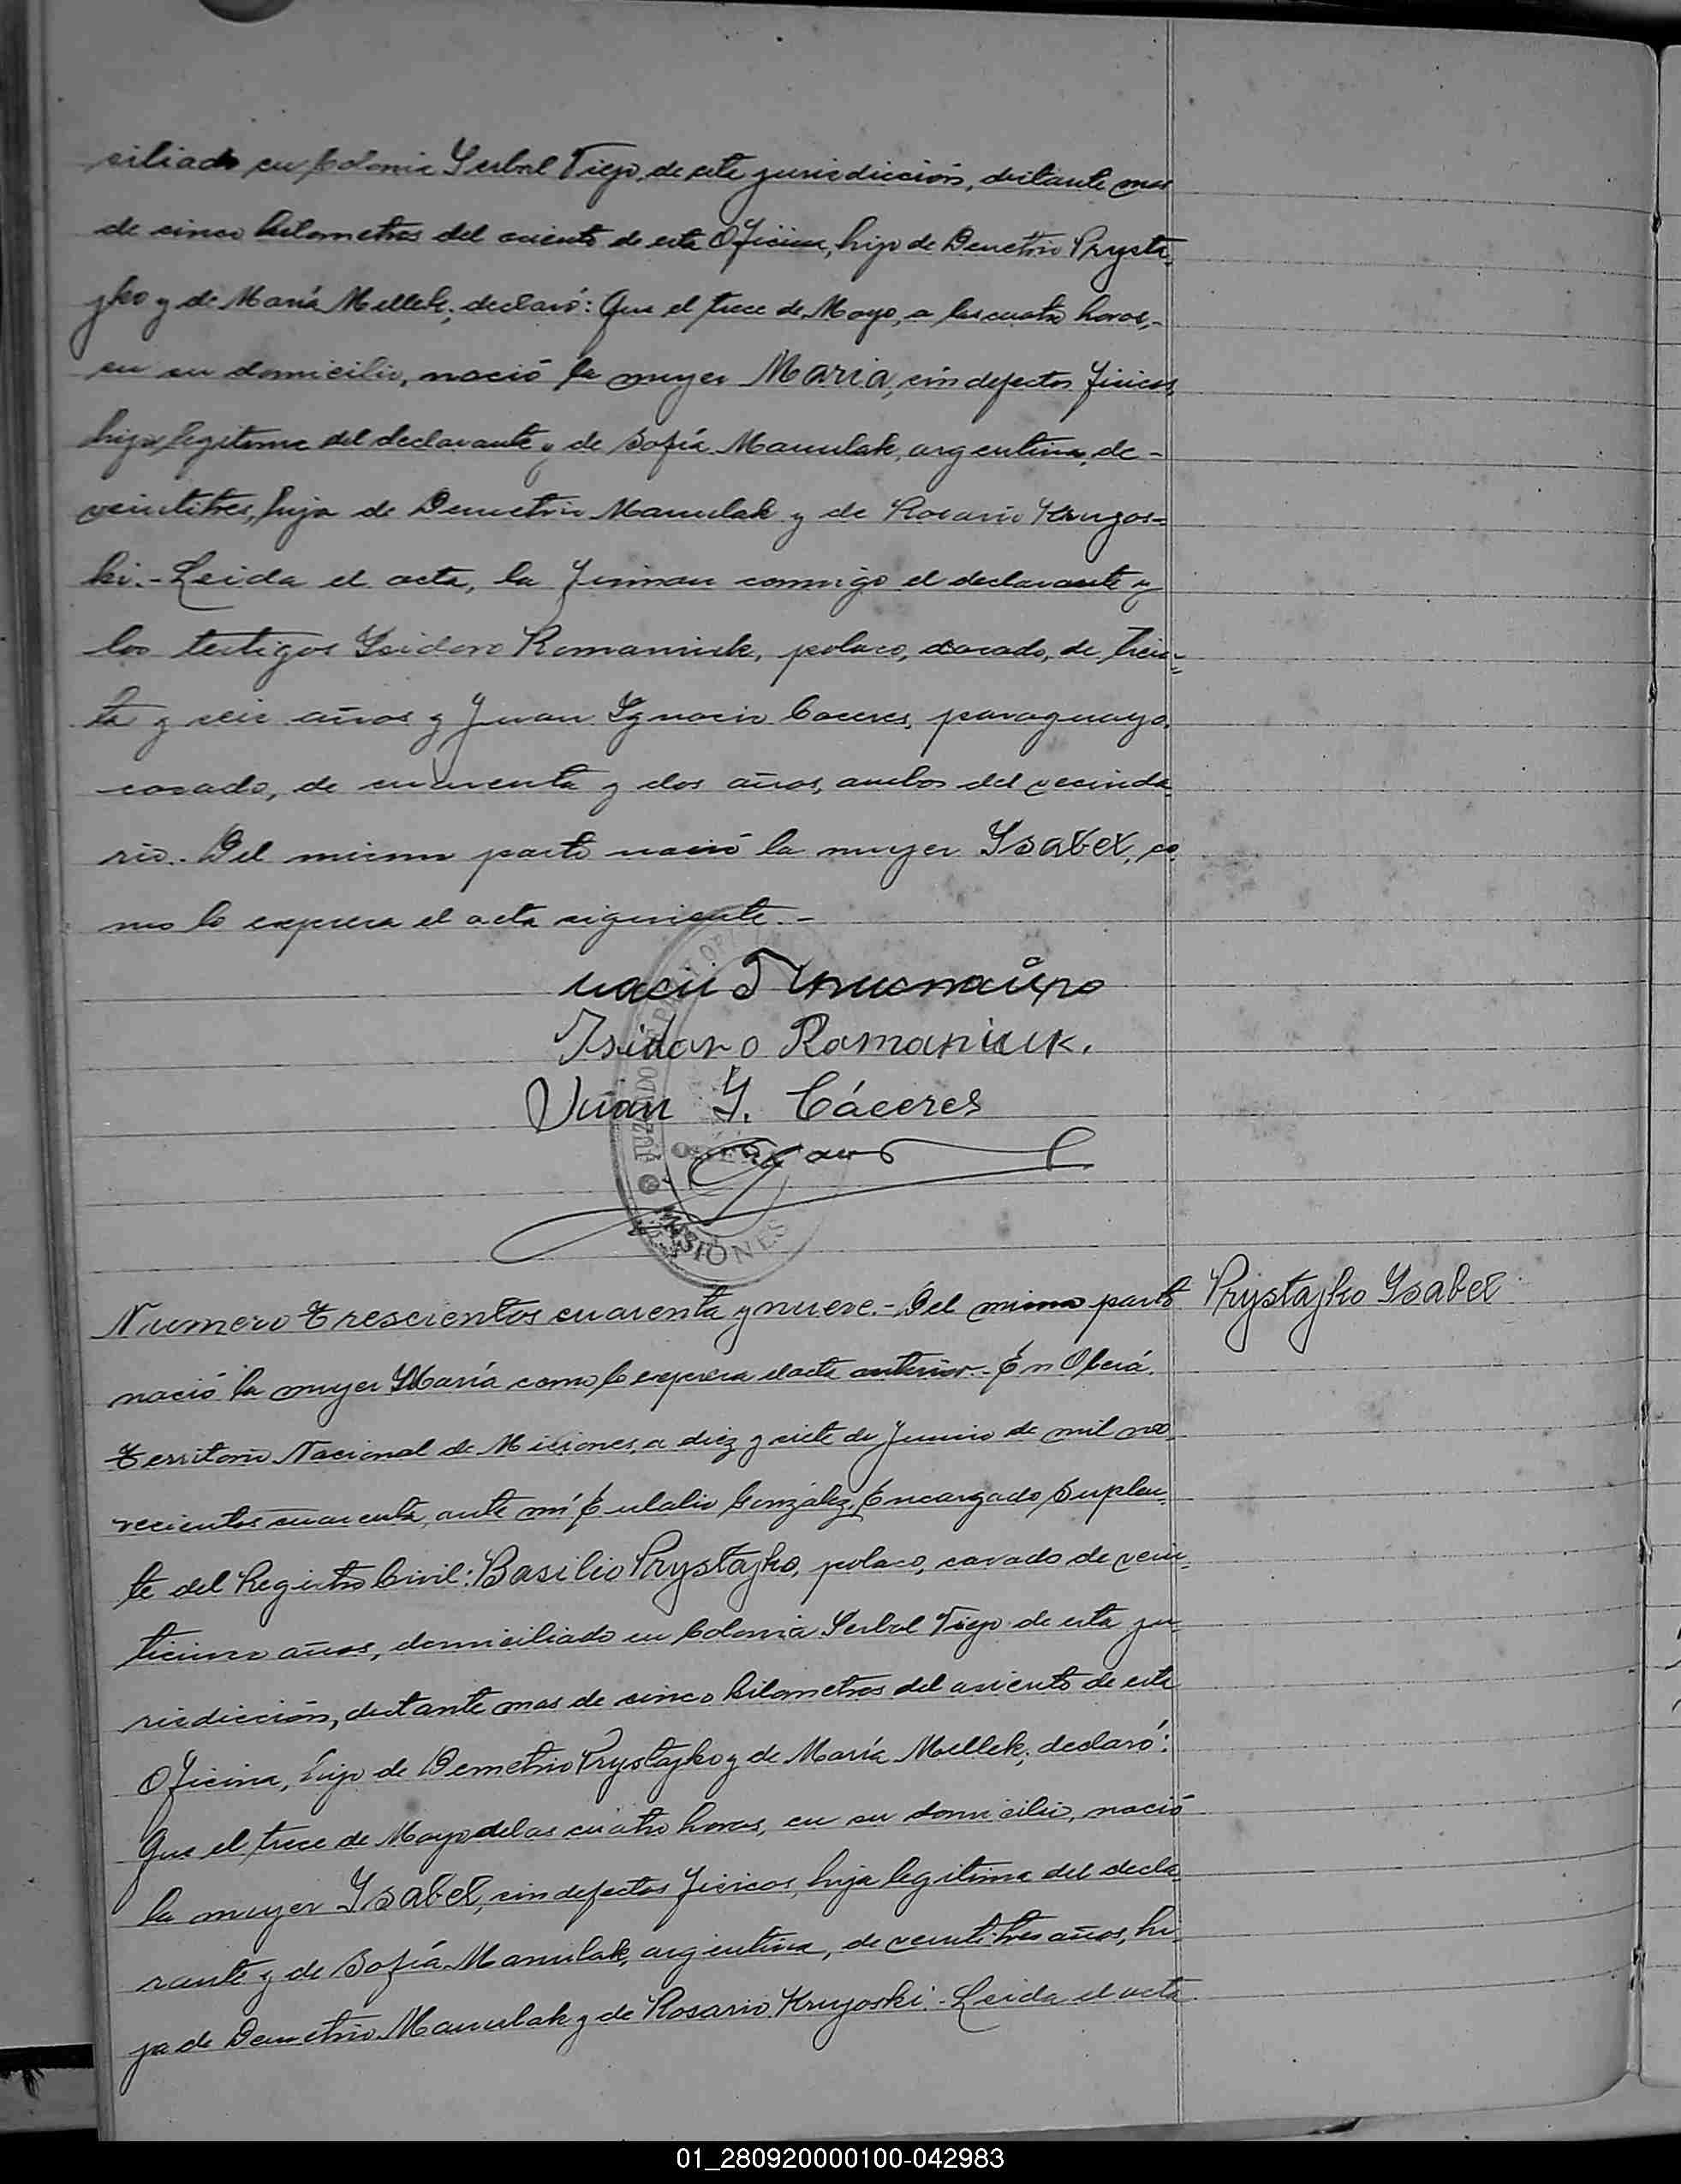 ciliado en Colonia Yerbal Viejo, de esta jurisdicción, distante mas
de cinco kilometros del asiento de esta Oficina, hijo de Demetrio Prysta-
jko y de María Mellek; declaró: Que el trece de Mayo, a las cuatro horas,-
en su domicilio, nació la mujer Maria, sin defectos fisicos,
hija legitima del declarante y de Sofía Manulak, argentina, de-
veintitres, hija de Demetrio Manulak y de Rosario Kruyos=
ki.- Leida el acta, la firman conmigo el declarante y
los testigos Ysidoro Romaniuk, polaco, casado, de trein-
ta y seis años y Juan Ygnacio Caceres, paraguayo,
casado, de cuarenta y dos años, ambos del vecinda-
rio.- Del mismo parto nació la mujer Ysabel, co-
mo lo expresa el acta siguiente.-
Isidoro Romaniuk.
Juan Y. Cáceres
JUZGADO DE PAZ
OBERÁ
MISIONES
Numero Trescientos cuarenta y nueve.- Del mismo parto
Prystajko Ysabel
nació la mujer María como lo expresa el acta anterior.- En Oberá,
Territorio Nacional de Misiones, a diez y siete de Junio de mil no-
vecientos cuarenta, ante mí Eulalio González, Encargado Suplen-
te del Registro Civil: Basilio Prystajko, polaco, casado de vein-
ticinco años, domiciliado en Colonia Yerbal Viejo de esta ju-
risdicción, distante mas de cinco kilometros del asiento de esta
Oficina, hijo de Demetrio Prystajko y de María Mellek; declaró:
Que el trece de Mayo de las cuatro horas, en su domicilio, nació
la mujer Ysabel, sin defectos fisicos, hija legitima del decla-
rante y de Sofía Manulak, argentina, de veintitres años, hi-
ja de Demetrio Manulak y de Rosario Kruyoski.- Leida el acta
01_280920000100-042983